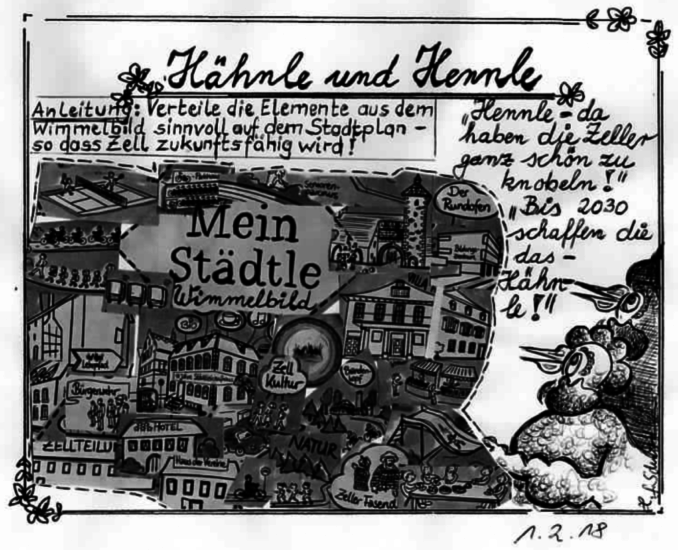 Hähnle und Hennle
Anleitung: Verteile die Elemente aus dem
Wimmelbild sinnvoll auf dem Stadtplan -
so dass Zell zukunftsfähig wird!
"Hennle - da
haben die Zeller
ganz schön zu
knobeln!"
"Bis 2030
schaffen die
das -
Hähn-
le!"
Mein
Städtle
Wimmelbild
Der
Rundofen
VILLA
Zell
Kultur
Bürgerwehr
HOTEL
ZELLTEILUNG
NATUR
Zeller Fasend
1.2.18